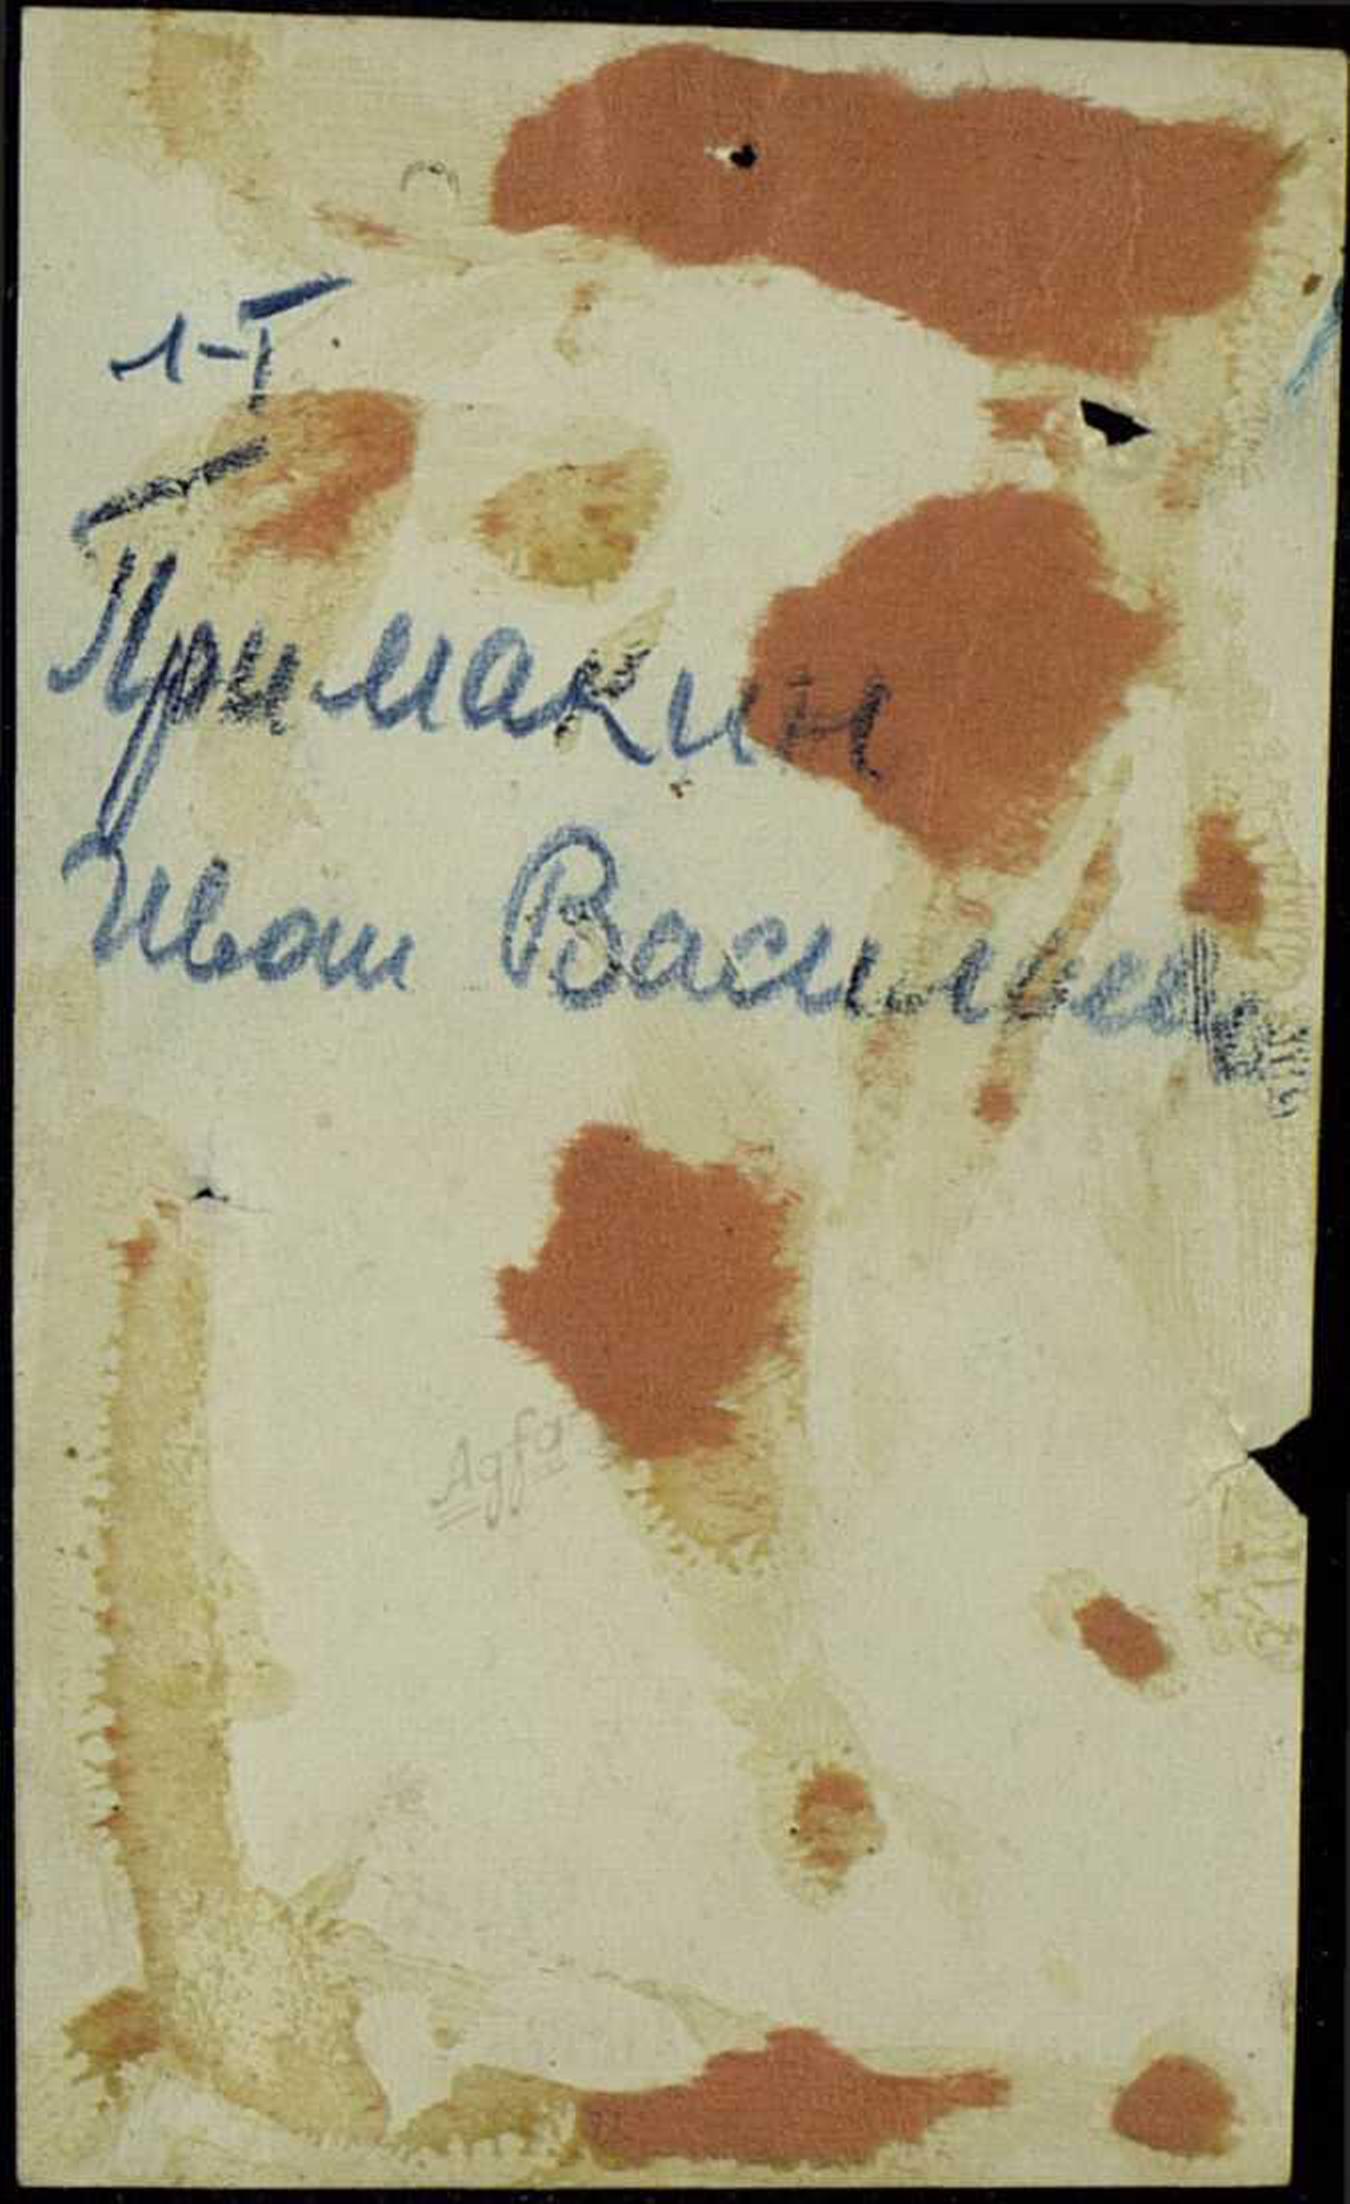 л-т
Примакин
Иван Васильевич
Agfa